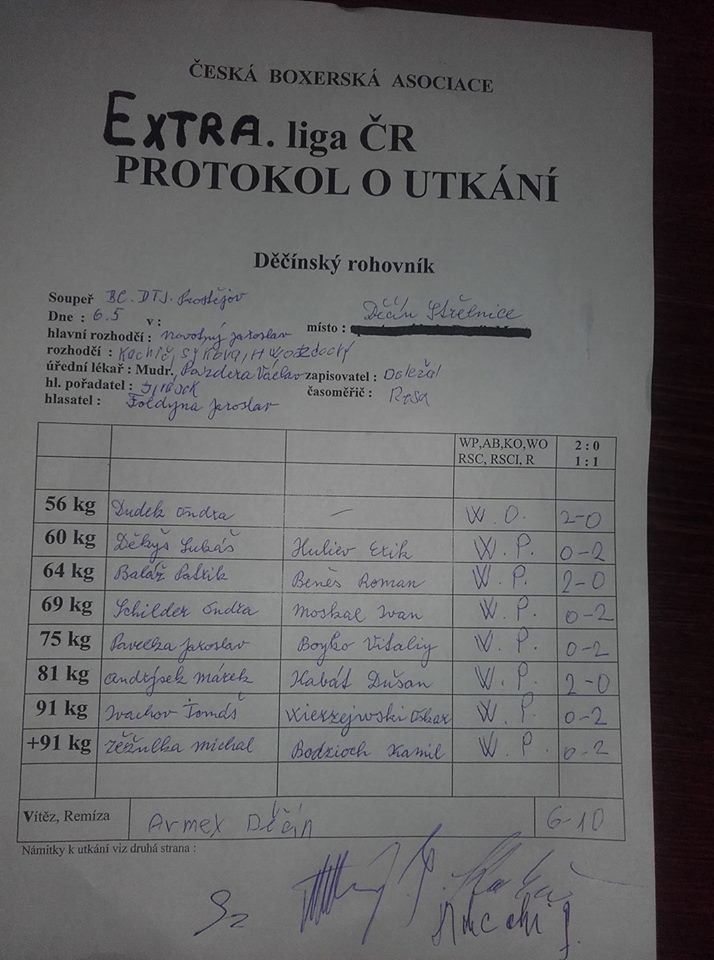 ČESKÁ BOXERSKÁ ASOCIACE
EXTRA. liga ČR
PROTOKOL O UTKÁNÍ
Děčínský rohovník
Soupeř BC. DTJ. Prostějov
Dne : 6.5 v : místo : Děčín Střelnice
hlavní rozhodčí : Novotný Jaroslav
rozhodčí :
úřední lékař : Mudr. Pazdera Václav zapisovatel : Doležal
hl. pořadatel : časoměřič : Rosa
hlasatel : Foldyna Jaroslav
WP,AB,KO,WO 2 : 0
RSC, RSCI, R 1 : 1
56 kg Dudek Ondra — W.O. 2-0
60 kg Děkýš Lukáš Huliev Erik W.P. 0-2
64 kg Baláž Patrik Beněš Roman W.P. 2-0
69 kg Schilder Ondra Moskal Ivan W.P. 0-2
75 kg Pavelka Jaroslav Boyko Vitaliy W.P. 0-2
81 kg Andrýsek Márek Kabát Dušan W.P. 2-0
91 kg Ivachov Tomáš Wierzejwski Oskar W.P. 0-2
+91 kg Režnlka Michal Bodzioch Kamil W.P. 0-2
Vítěz, Remíza Armex Děčín 6-10
Námitky k utkání viz druhá strana :